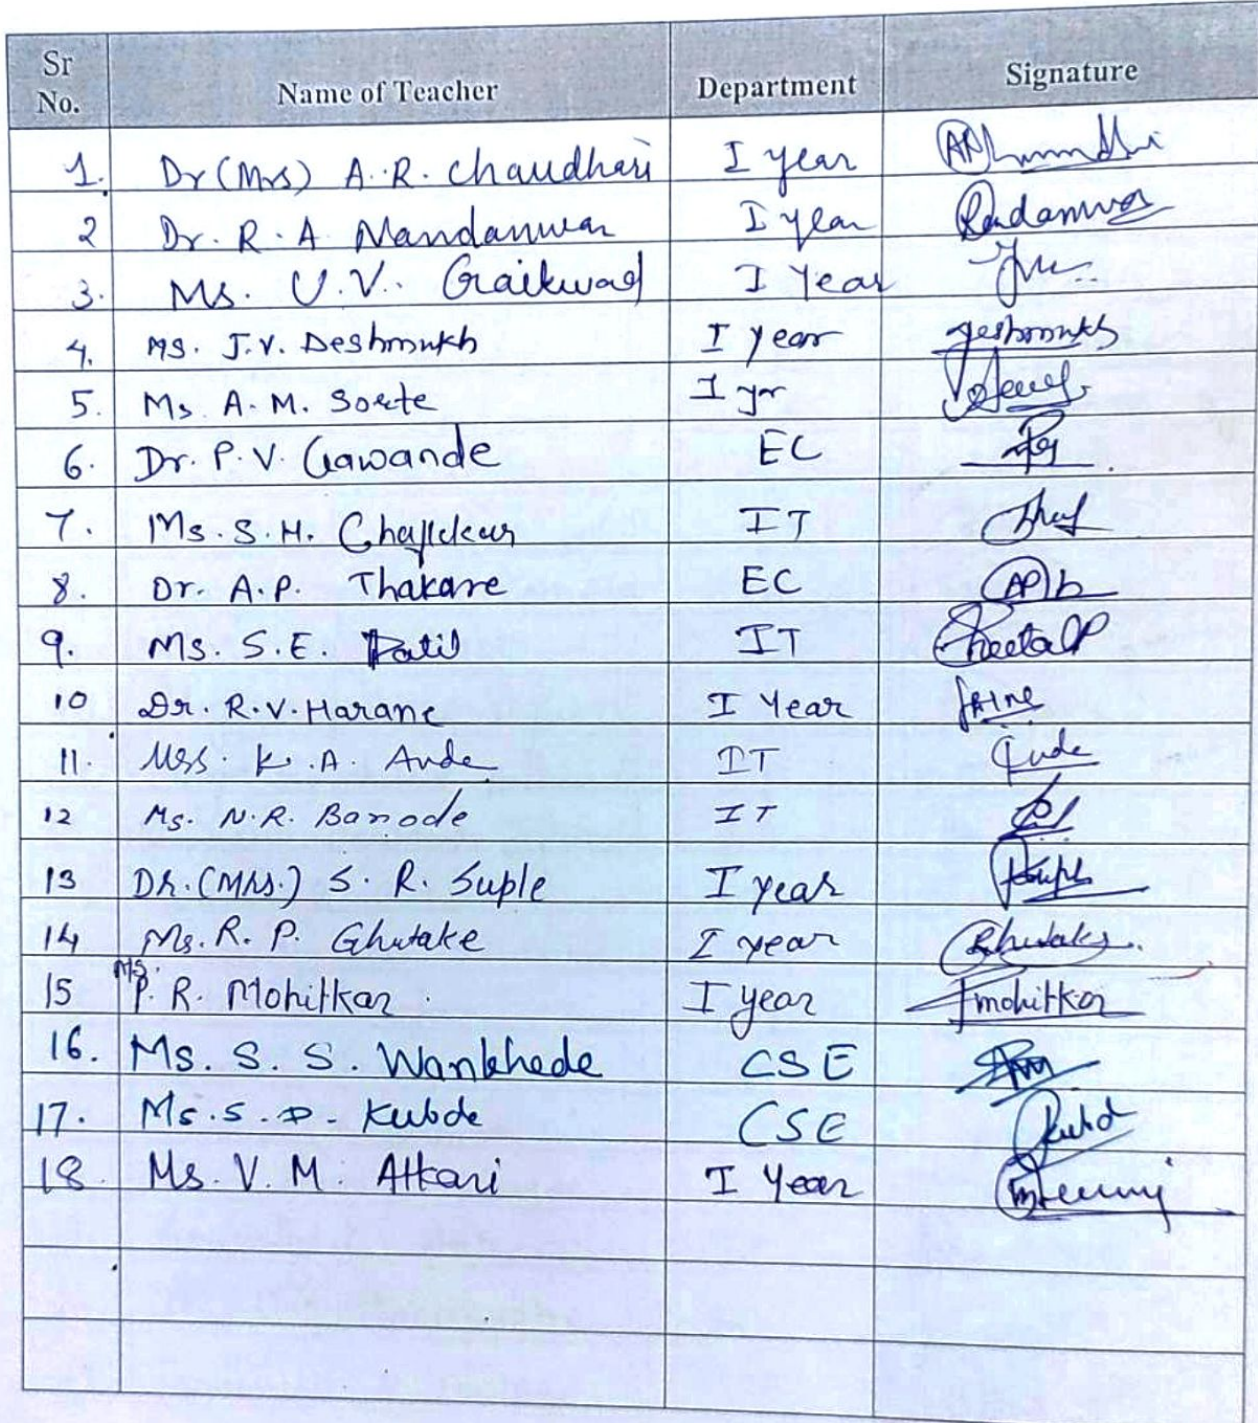 Sr No. Name of Teacher Department Signature
1. Dr (Mrs) A.R. Chaudhari I year
2 Dr. R.A Nandanwar I year
3. Ms. U.V. Gaikwad I Year
4. Ms. J.V. Deshmukh I year
5. Ms A.M. Sorte I yr
6. Dr. P.V. Gawande EC
7. Ms. S.H. IT
8. Dr. A.P. Thakare EC
9. Ms. S.E. Patil IT
10 Dr. R.V. Harane I Year
11. K.A. Aude IT
12 Ms. N.R. Barode IT
13 Dr. (Mrs.) S. R. Suple I year
14 Ms. R. P. Ghutake I year
15 Ms. P. R. Mohitkar I year mohitkar
16. Ms. S. S. Wankhede CSE
17. Ms. S. D. Kubde CSE
18. Ms. V. M. Attari I Year